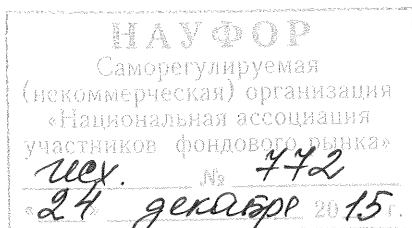 НАУФОР
Саморегулируемая
(некоммерческая) организация
«Национальная ассоциация
участников фондового рынка»
исх. № 772
«24» декабря 2015 г.